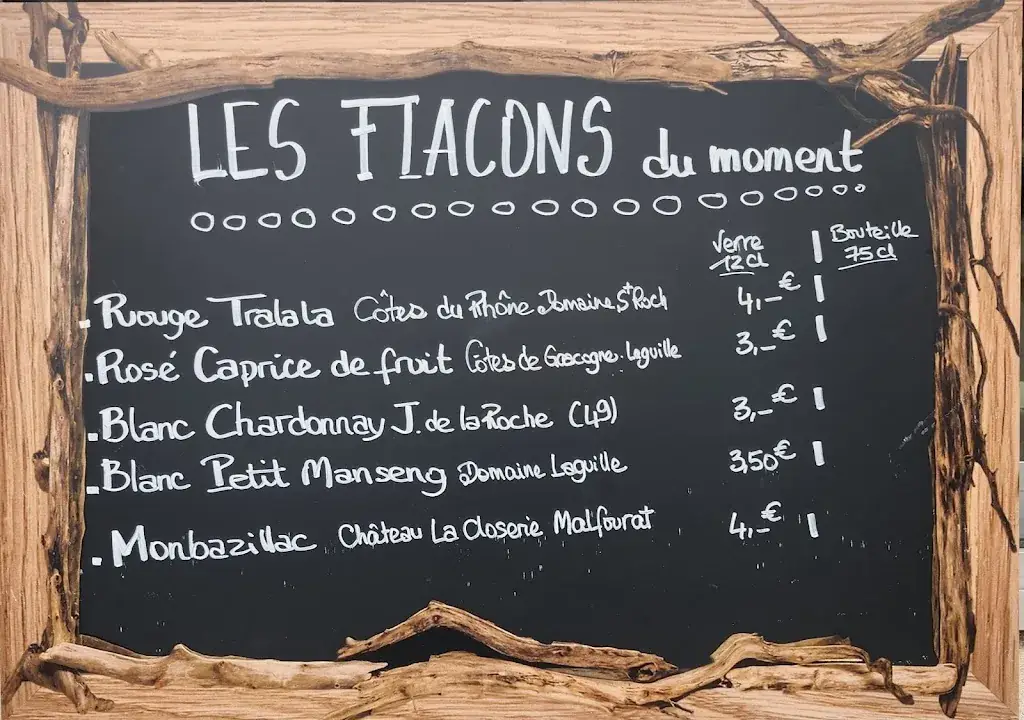 LES FLACONS du moment
Verre | Bouteille
12cl 75cl
. Rouge Tralala Côtes du Rhône Domaine St Roch 4,-€ |
. Rosé Caprice de fruit Côtes de Gascogne. Laguille 3,-€ |
. Blanc Chardonnay J. de la Roche (49) 3,-€ |
. Blanc Petit Manseng Domaine Laguille 3,50€ |
. Monbazillac Château La Closerie Malfourat 4,-€ |